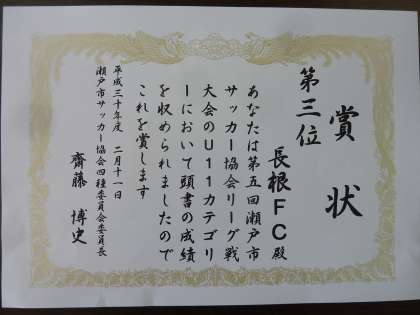 賞状
第三位
長根FC殿
あなたは第五回瀬戸市
サッカー協会リーグ戦
大会のU11カテゴリ
ーにおいて頭書の成績
を収められましたので
これを賞します
平成三十年度 二月十一日
瀬戸市サッカー協会四種委員会委員長
齋藤 博史